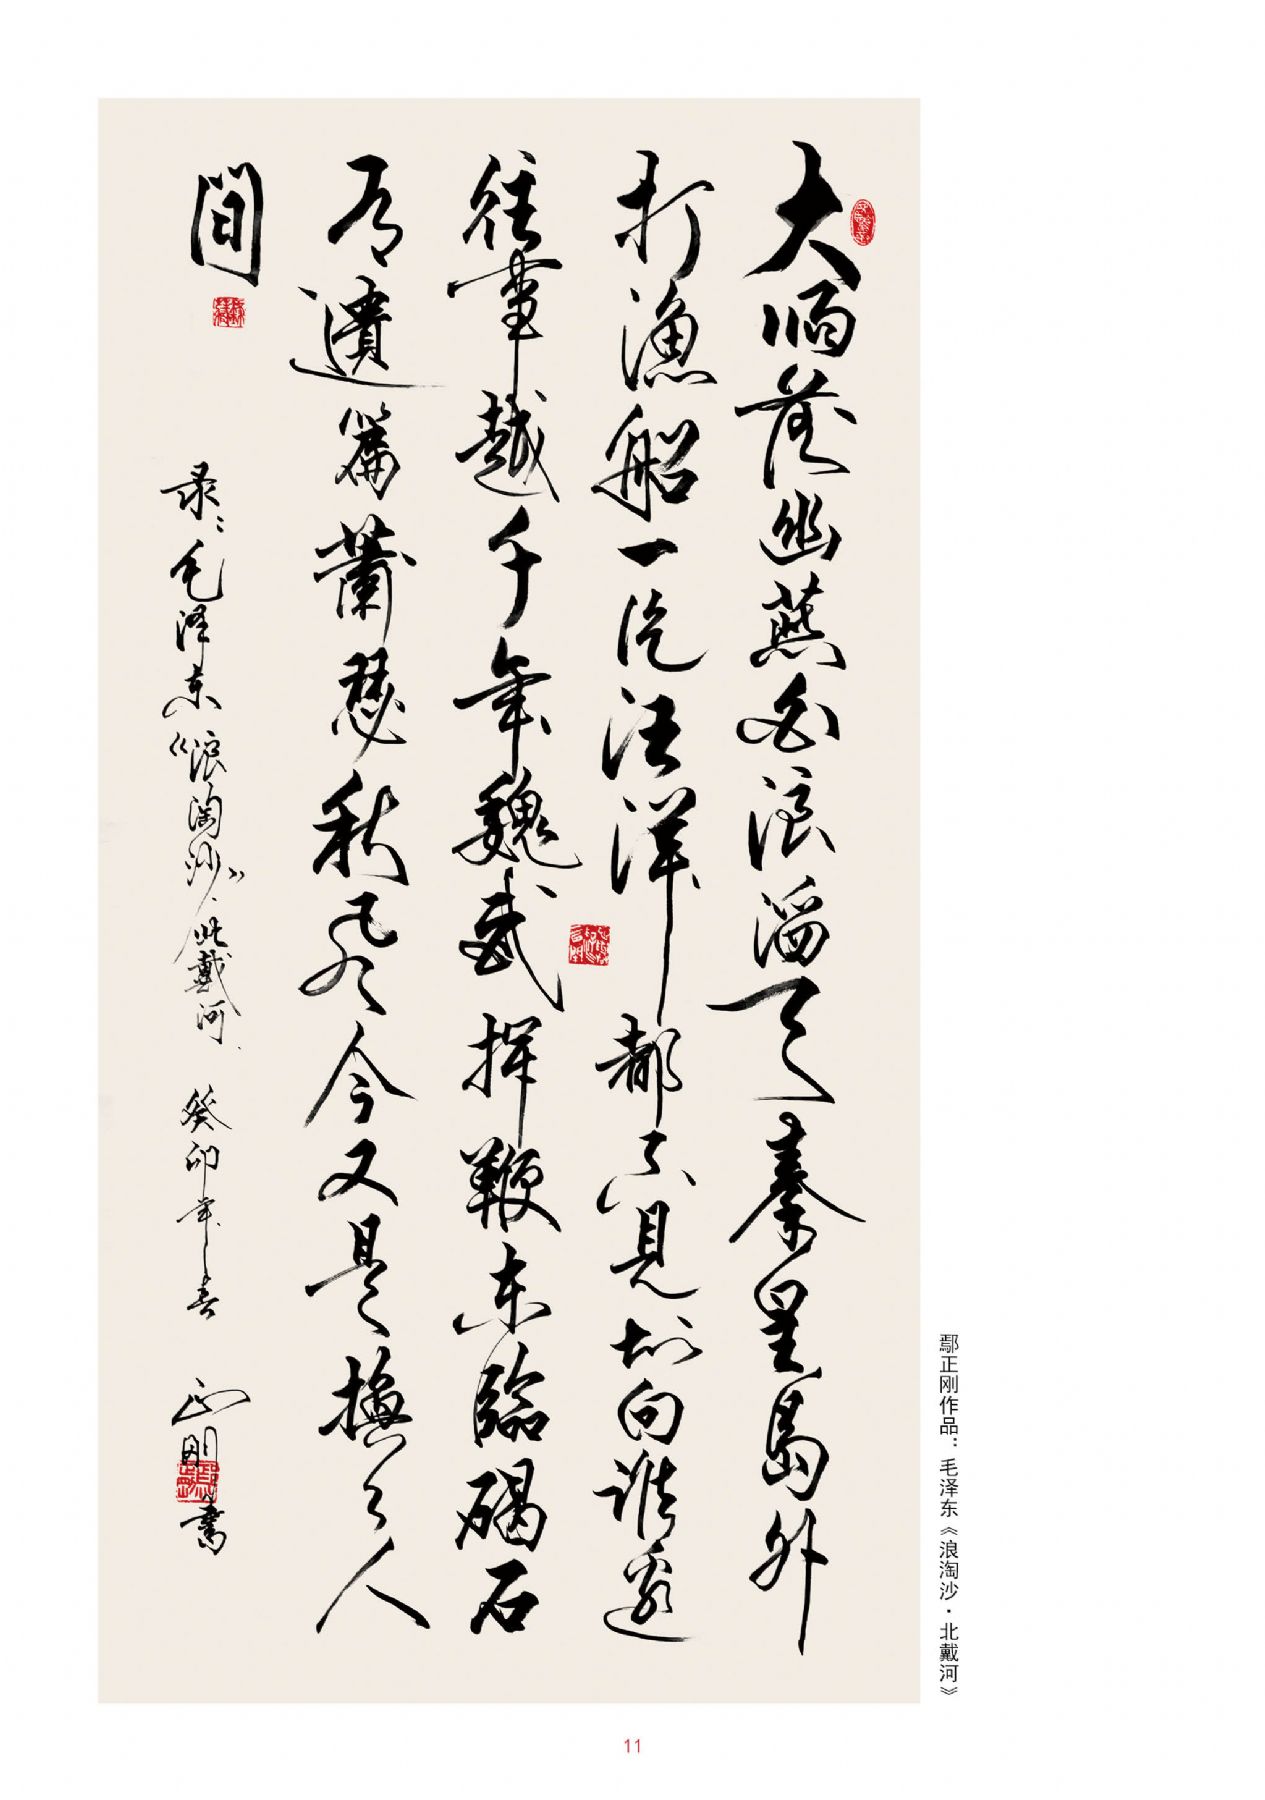 大雨落幽燕白浪滔天秦皇島外
打漁船一片汪洋都不見知向誰邊
往事越千年魏武揮鞭东臨碣石
有遺篇蕭瑟秋風今又是換了人
間
录：毛泽东《浪淘沙》·北戴河.癸卯年春 正剛書
鄢正刚作品：毛泽东《浪淘沙·北戴河》
11